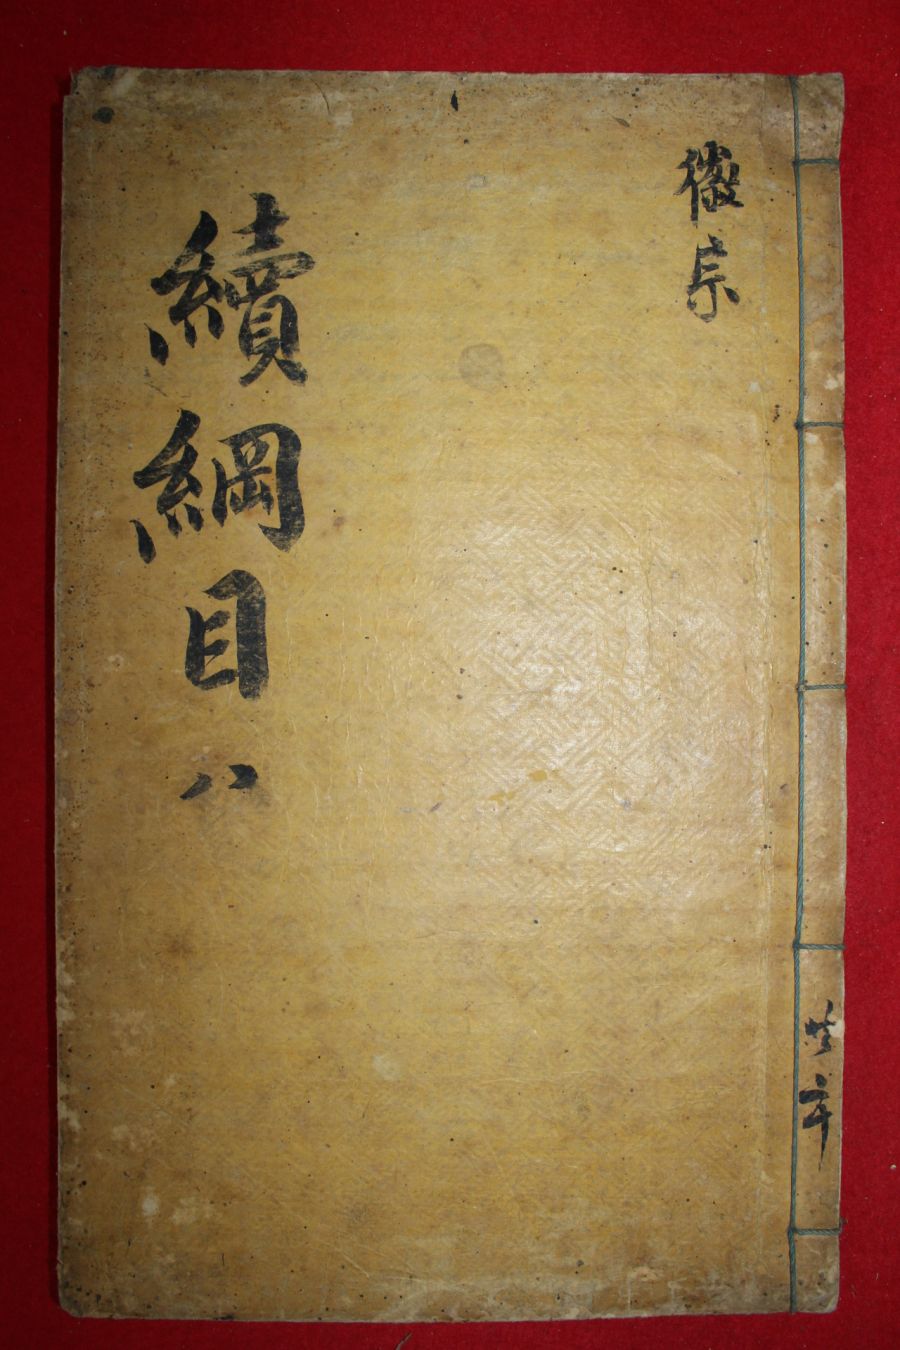 徽宗
續綱目 八
共